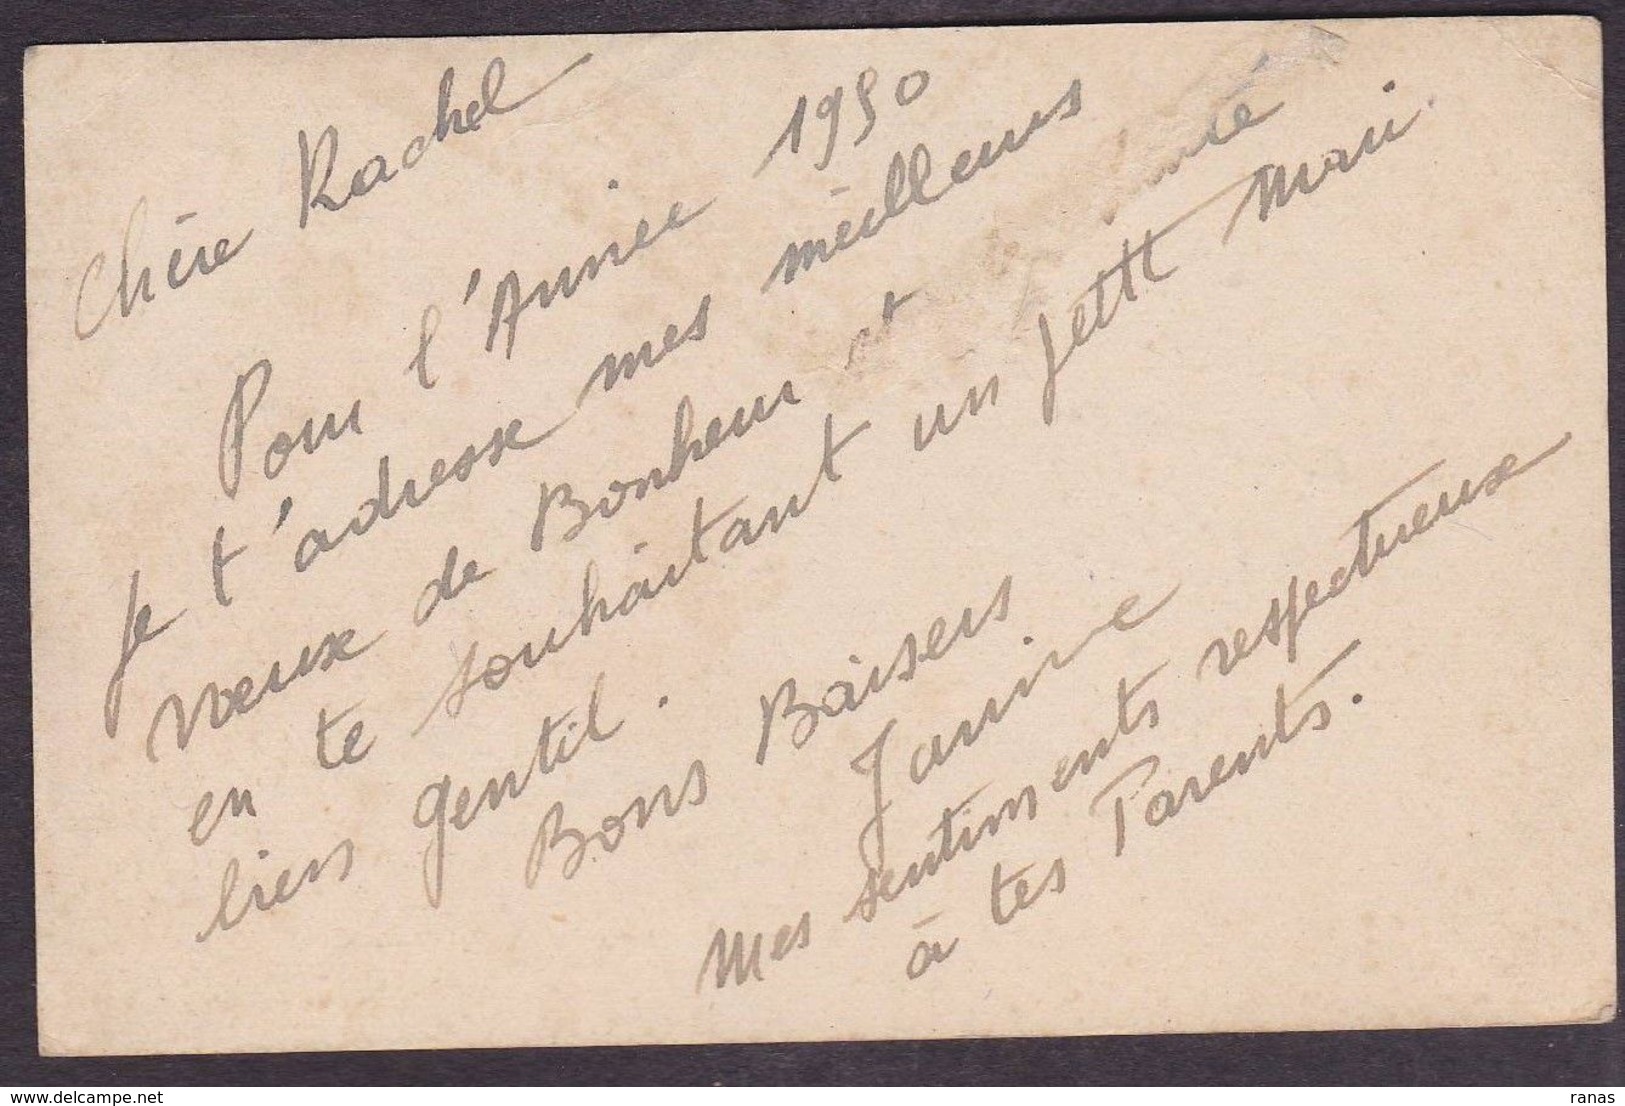 Chère Rachel
Pour l'Année 1950
Je t'adresse mes meilleurs
voeux de Bonheur et
en te souhaitant un petit Mari
bien gentil.
Bons Baisers
Janine
Mes sentiments respectueux
à tes Parents.
delcampe.net
ranas